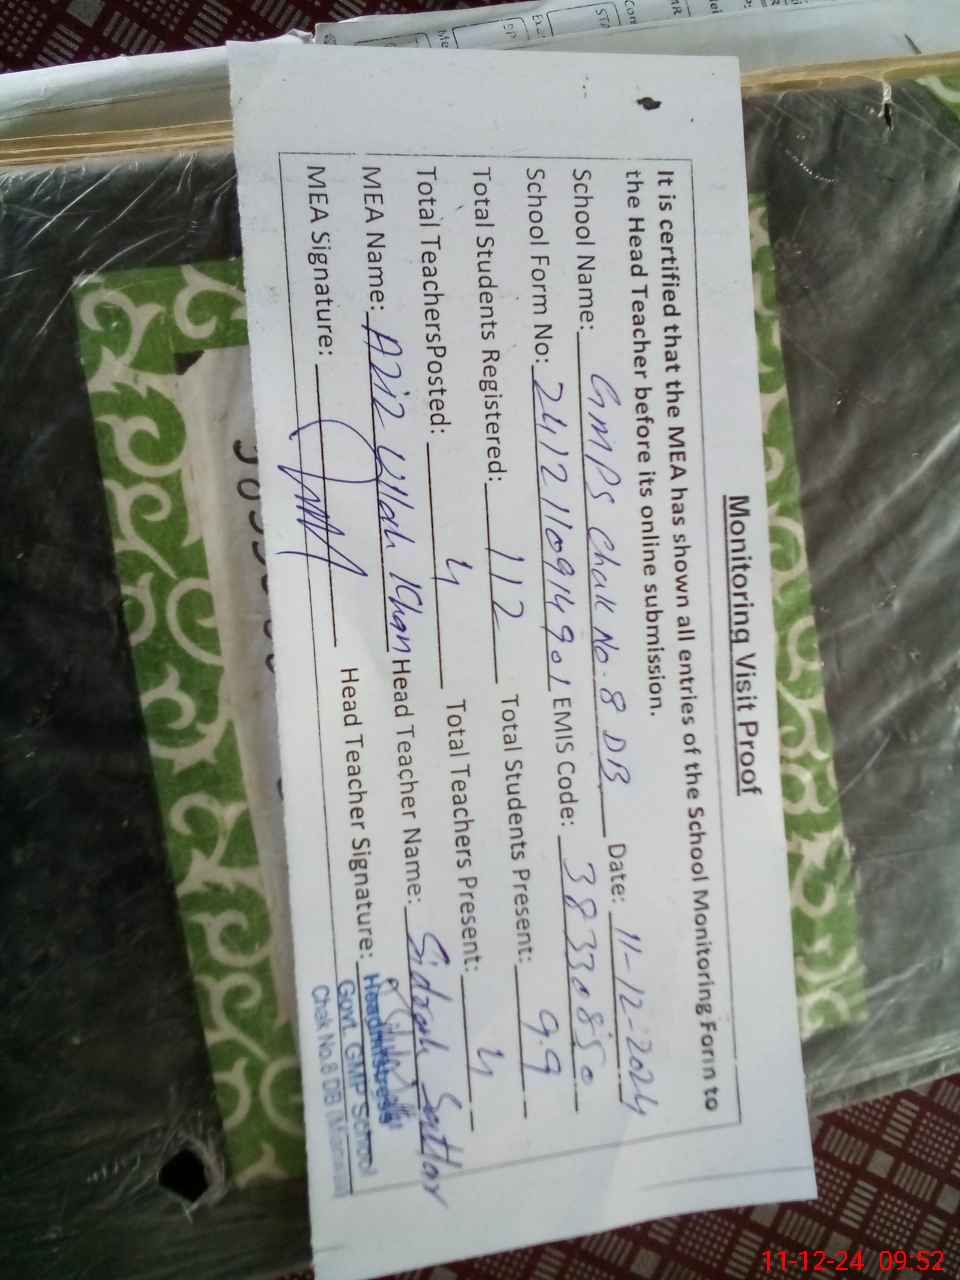 Monitoring Visit Proof
It is certified that the MEA has shown all entries of the School Monitoring Form to
the Head Teacher before its online submission.
School Name: GMPS Chak No. 8 DB Date: 11-12-2024
School Form No: 2412110914901 EMIS Code: 38330850
Total Students Registered: 112 Total Students Present: 99
Total TeachersPosted: 4 Total Teachers Present: 4
MEA Name: Aziz Ullah Khan Head Teacher Name: Sidrah Sattar
MEA Signature: Head Teacher Signature:
Headmistress
Govt. GMP School
Chak No.8 DB
11-12-24 09:52